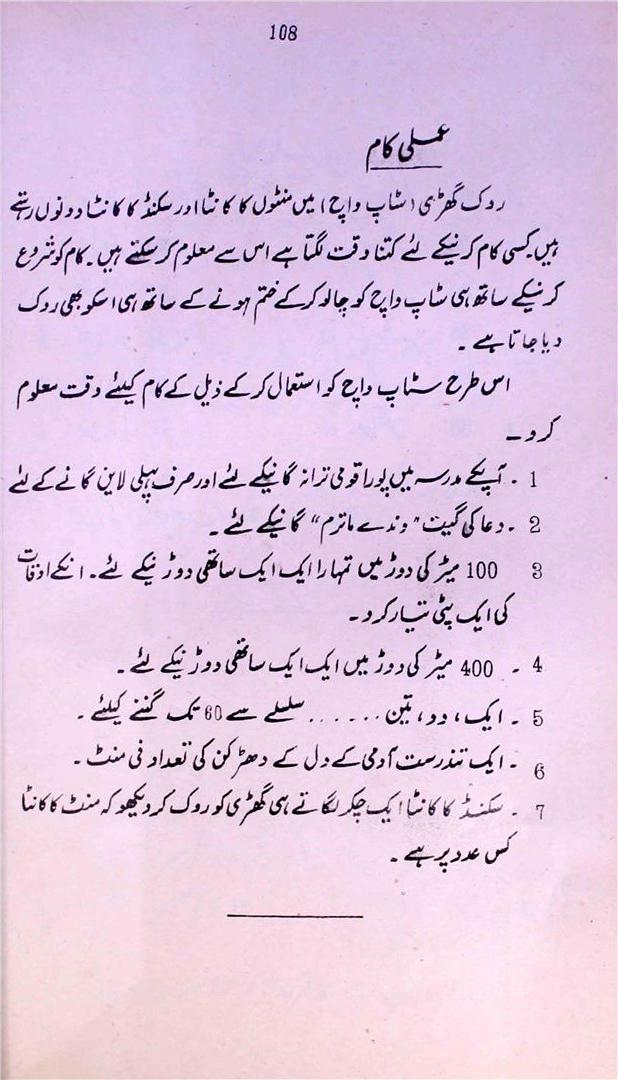 108
عملی کام
روک گھڑی (سٹاپ واچ) میں منٹوں کا کانٹا اور سکنڈ کا کانٹا دونوں رہتے
ہیں۔ کسی کام کرنیکے لئے کتنا وقت لگتا ہے اس سے معلوم کر سکتے ہیں۔ کام کو شروع
کرنیکے ساتھ ہی سٹاپ واچ کو چالو کرکے ختم ہونے کے ساتھ ہی اسکو بھی روک
دیا جاتا ہے ۔
اس طرح سٹاپ واچ کو استعمال کرکے ذیل کے کام کیلئے وقت معلوم
کرو ۔
1 ۔ آپکے مدرسہ میں پورا قومی ترانہ گانیکے لئے اور صرف پہلی لاین گانے کے لئے
2 ۔ دعا کی گیت "وندے ماترم" گانیکے لئے ۔
3 100 میٹر کی دوڑ میں تمہارا ایک ایک ساتھی دوڑنیکے لئے ۔ انکے اوقات
کی ایک پٹی تیار کرو ۔
4 ۔ 400 میٹر کی دوڑ میں ایک ایک ساتھی دوڑنیکے لئے ۔
5 ۔ ایک، دو، تین ...... سلسلے سے 60 تک گننے کیلئے ۔
6 ۔ ایک تندرست آدمی کے دل کے دھڑکن کی تعداد فی منٹ ۔
7 ۔ سکنڈ کا کانٹا ایک چکر لگاتے ہی گھڑی کو روک کر دیکھو کہ منٹ کا کانٹا
کس عدد پر ہے ۔